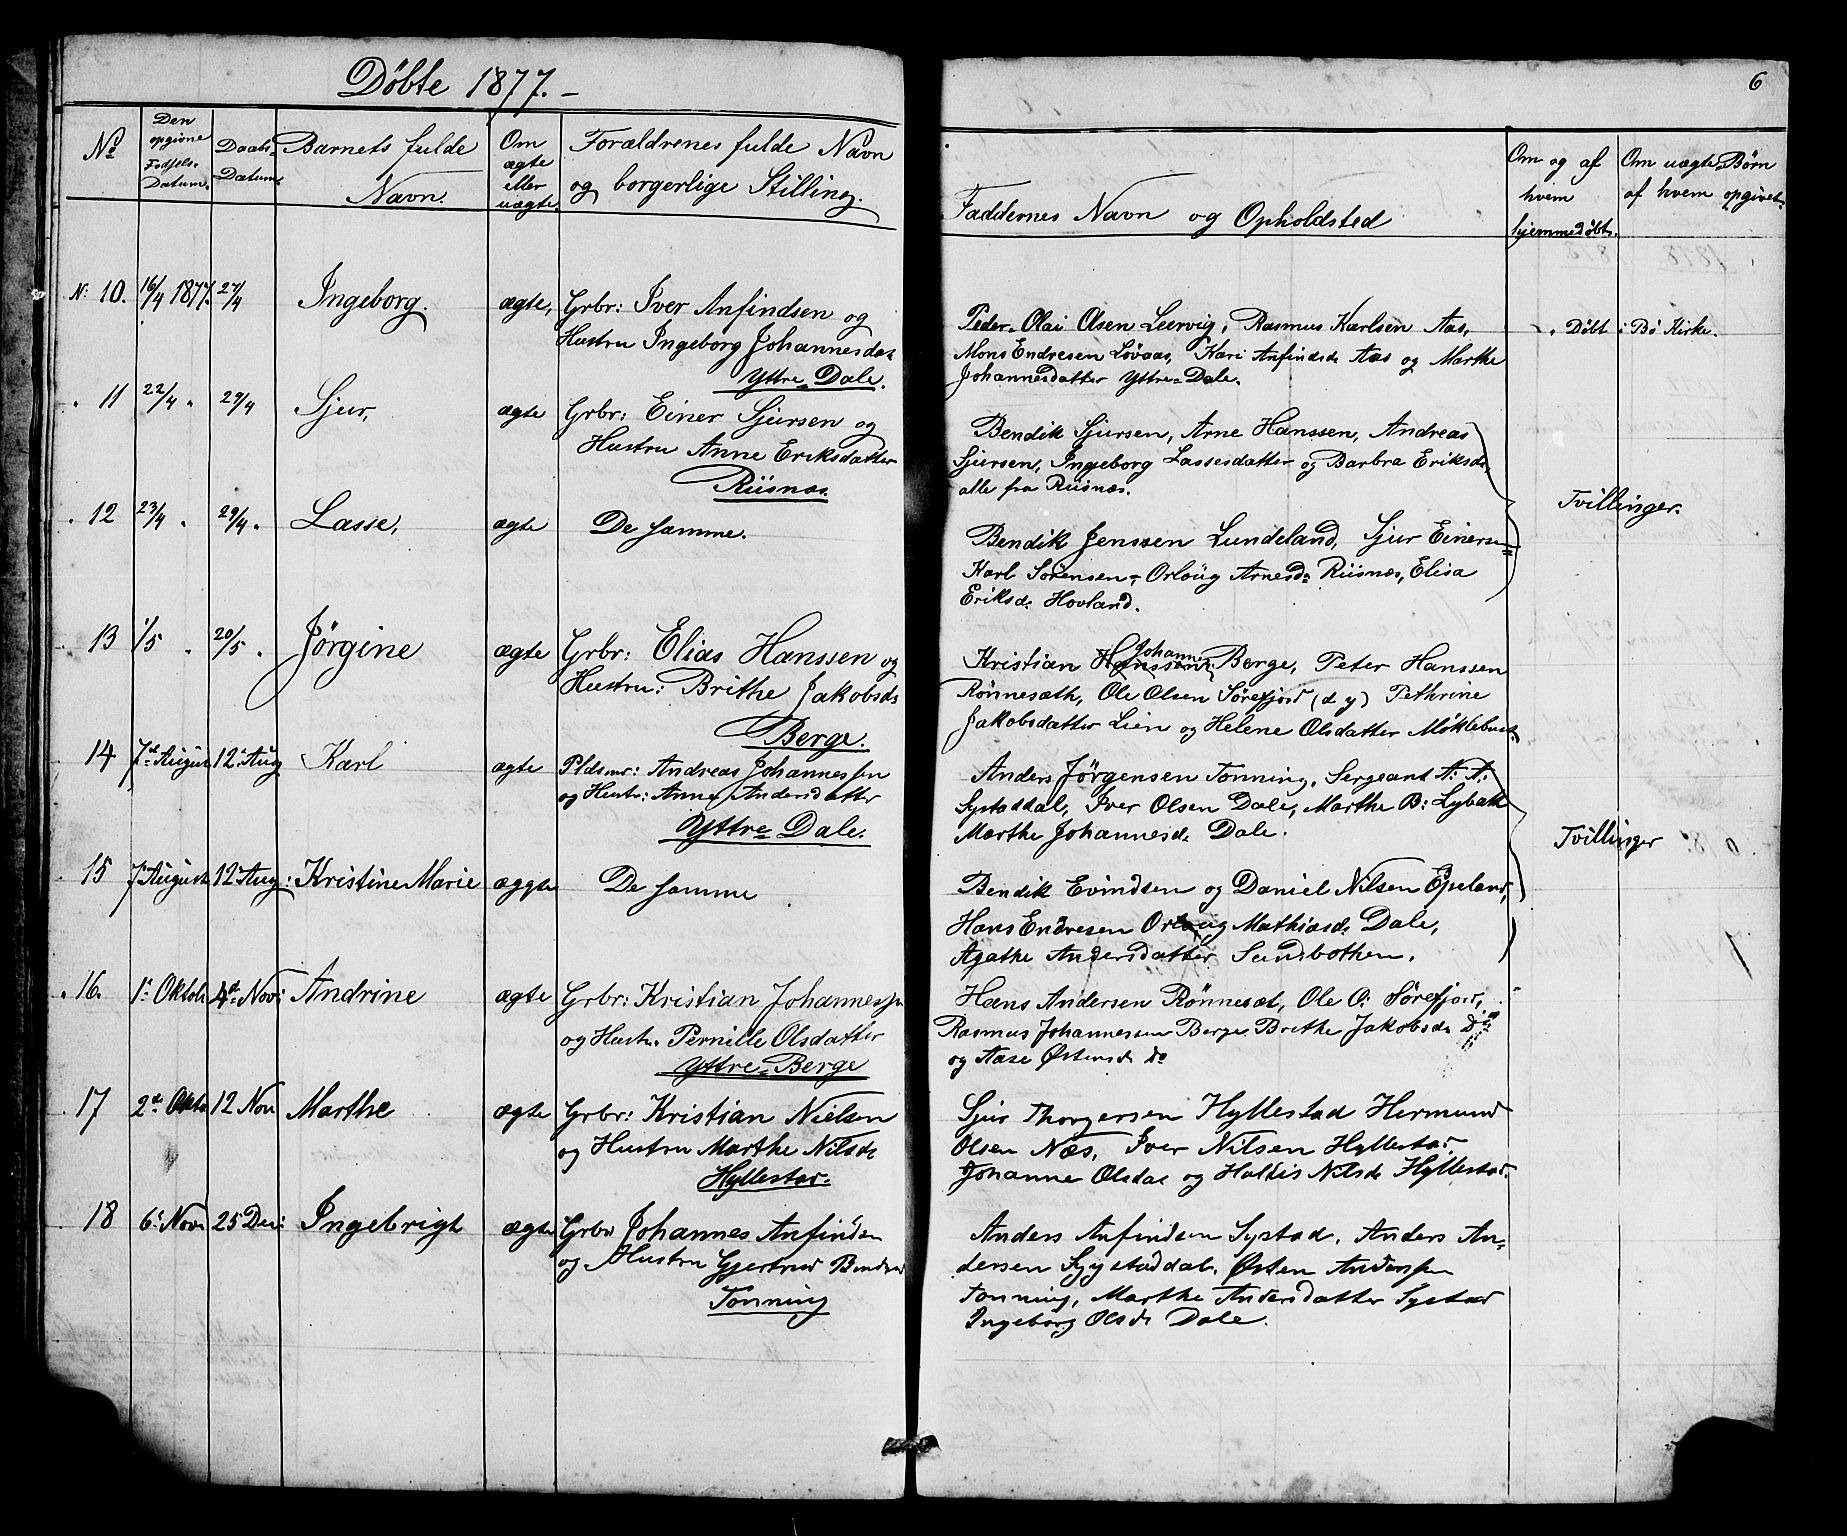 Döbte 1877.
6
No
Den opgivne Fødsels Datum.
Daabs-Datum.
Barnets fulde Navn.
Om ægte eller uægte.
Forældrenes fulde Navn og borgerlige Stilling.
Faddernes Navn og Opholdsted
Om og af hvem hjemmedöbt.
Om uægte Børn af hvem opgivet
N: 10. 16/4 1877. 27/4 Ingeborg. ægte, Grbr: Iver Anfindsen og
Hustru Ingeborg Johannesda.
Yttre-Dale.
Peder-Olai Olsen Leervig, Rasmus Karlsen Aas,
Mons Endresen Lövaas, Kari Anfindsd. Aas og Marthe
Johannesdatter Yttre-Dale.
Döbt i Bö Kirke.
11 22/4 29/4 Sjur, ægte Grbr: Einer Sjursen og
Hustru Anne Eriksdatter
Riisnæs.
Bendik Sjursen, Arne Hanssen, Andreas
Sjursen, Ingeborg Lassesdatter og Barbra Eriksd.
alle fra Riisnæs.
Tvillinger.
12 23/4 29/4 Lasse, ægte De samme.
Bendik Jenssen Lundeland, Sjur Einersen
Karl Sørensen- Orloüg Arnesd. Riisnæs, Elisa
Eriksd. Hovland.
13 1/5 20/5 Jörgine ægte Grbr: Elias Hanssen og
Hustru: Brithe Jakobsd.
Berge.
Kristian Johann. Berge, Peter Hanssen
Rönnesæth, Ole Olsen Sörefjord (d y) Pethrine
Jakobsdatter Lien og Helene Olsdatter Möklebust
14 7de August 12. Aug Karl ægte Pldsmr: Andreas Johannessen
og Hustr: Anne Andersdatter
Yttre-Dale.
Anders Jörgensen Tonning, Sergeant A: A:
Systaddal, Iver Olsen Dale, Marthe B: Lybæk
Marthe Johannesd. Dale.
Tvillinger
15 7. August 12 Aug: Kristine Marie æggte De samme
Bendik Evindsen og Daniel Nilsen Espeland,
Hans Endresen Orloug Mathiasd. Dale,
Agathe Andersdatter Sundbotten.
16. 1. Oktob. 4de Nov: Andrine ægte Grbr: Kristian Johannessen
og Hustr. Pernille Olsdatter
Yttre-Berge
Hans Andersen Rönnesæt, Ole O: Sörefjord,
Rasmus Johannessen Berge Brithe Jakobsd.
og Aase Østensd. do
17 2de Okto 12 Nov Marthe ægte Grbr: Kristian Nielsen
og Hustru Marthe Nilsd.
Hyllestad.
Sjur Thorgersen Hyllestad Hermund
Olsen Næs, Iver Nilsen Hyllestad
Johanne Olsda og Haldis Nilsd. Hyllestad
18 6. Nov 25 Dec: Ingebrigt ægte Grbr Johannes Anfindsen
og Hustru Gjertrud Bendiksd
Tonning
Anders Anfindsen Systad, Anders An-
dersen Systaddal, Østen Anderssen
Tonning, Marthe Andersdatter Systad
Ingeborg Olsd. Dale.